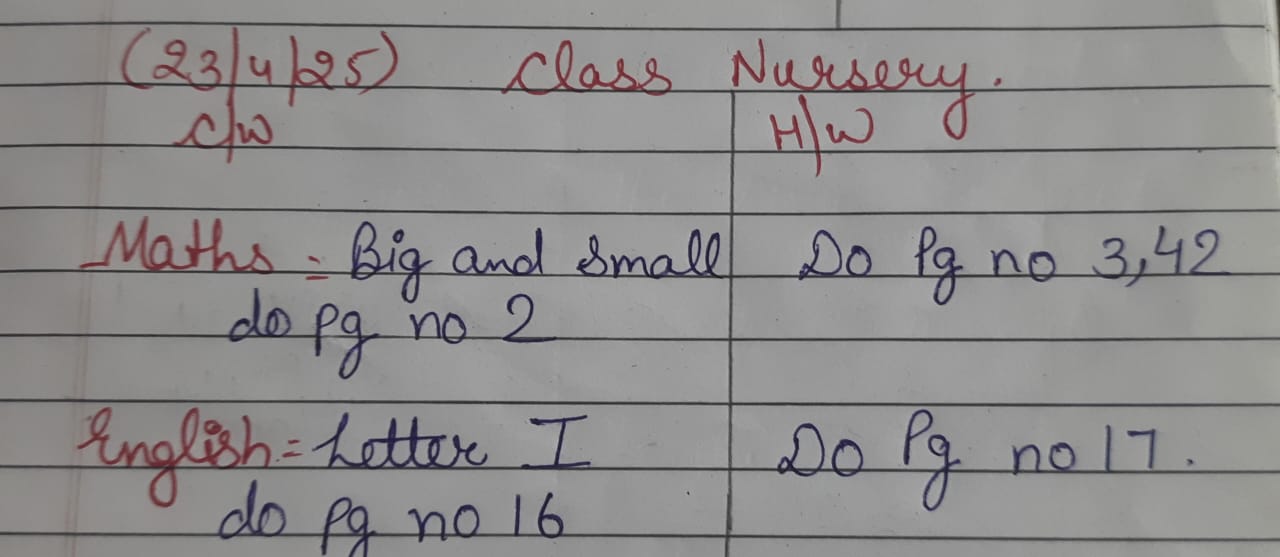 (23/4/25) Class Nursery.
C/W H/W
Maths = Big and small Do Pg no 3,42
do pg no 2
English = Letter I Do Pg no 17.
do pg no 16